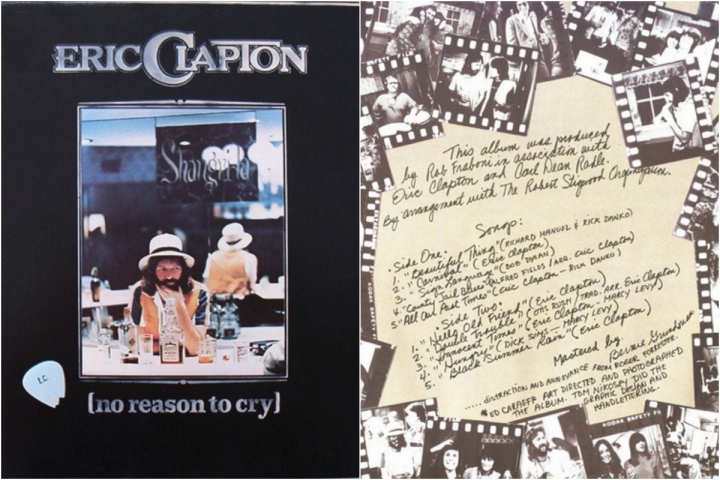 ERIC CLAPTON
Shangri-la
[no reason to cry]
This album was produced
by Rob Fraboni in association with
Eric Clapton and Carl Dean Radle.
By arrangement with The Robert Stigwood Organization.
Songs:
Side One:
1. "Beautiful Thing" (RICHARD MANUEL & RICK DANKO)
2. "Carnival" (Eric Clapton)
3. "Sign Language" (BOB DYLAN)
4. "County Jail Blues" (ALFRED FIELDS / ARR. Eric Clapton)
5. "All Our Past Times" (Eric Clapton - RICK DANKO)
Side Two:
1. "Hello Old Friend" (Eric Clapton)
2. "Double Trouble" (OTIS RUSH / TRAD. ARR. Eric Clapton)
3. "Innocent Times" (Eric Clapton - MARCY LEVY)
4. "Hungry" (DICK SIMS - MARCY LEVY)
5. "Black Summer Rain" (Eric Clapton)
Mastered by
Bernie Grundman
..... DISTRACTION AND ANNOYANCE FROM ROGER FORRESTER.
ED CARAEFF ART DIRECTED AND PHOTOGRAPHED
THE ALBUM. TOM NIKOSEY DID THE
GRAPHIC DESIGN AND
HANDLETTERING.
KODAK SAFETY FI